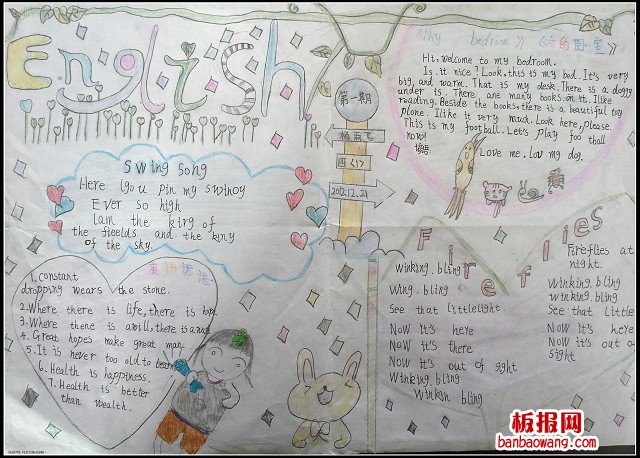 English
《My bedroom》 《我的卧室》
Hi, welcome to my bedroom.
Is it nice? Look, this is my bed. It's very
big, and warm. That is my desk. There is a doggy
under is. There are many books on it. I like
reading. Beside the books, there is a beautiful toy
plane. I like it very much. Look here, please.
This is my football. Let's play foo tball
now!
Love me, Lov my dog.
第一期
四(1)
2012.12.21
Swing Song
Here I go u pin my swinoy
Ever so high
I am the kirg of
the fieelds and the kiny
of the sky.
英语谚语
1. constant
dropping wears the stone.
2. Where there is life, there is hope.
3. Where there is a will, there is a way
4. Great hopes make great man.
5. It is never too old to learn
6. Health is happiness.
7. Health is better
than wealth.
Fireflies
Winking. bling
Wing. bling
See that little light.
Now it's heye
Now it's there
Now it's out of sight
Winking bling
Winkin bling
Fireflies at
night.
Winking. bling
winking. bling
See that little
Now it's heye
Now it's out o
sight
板报网
banbaowang.com